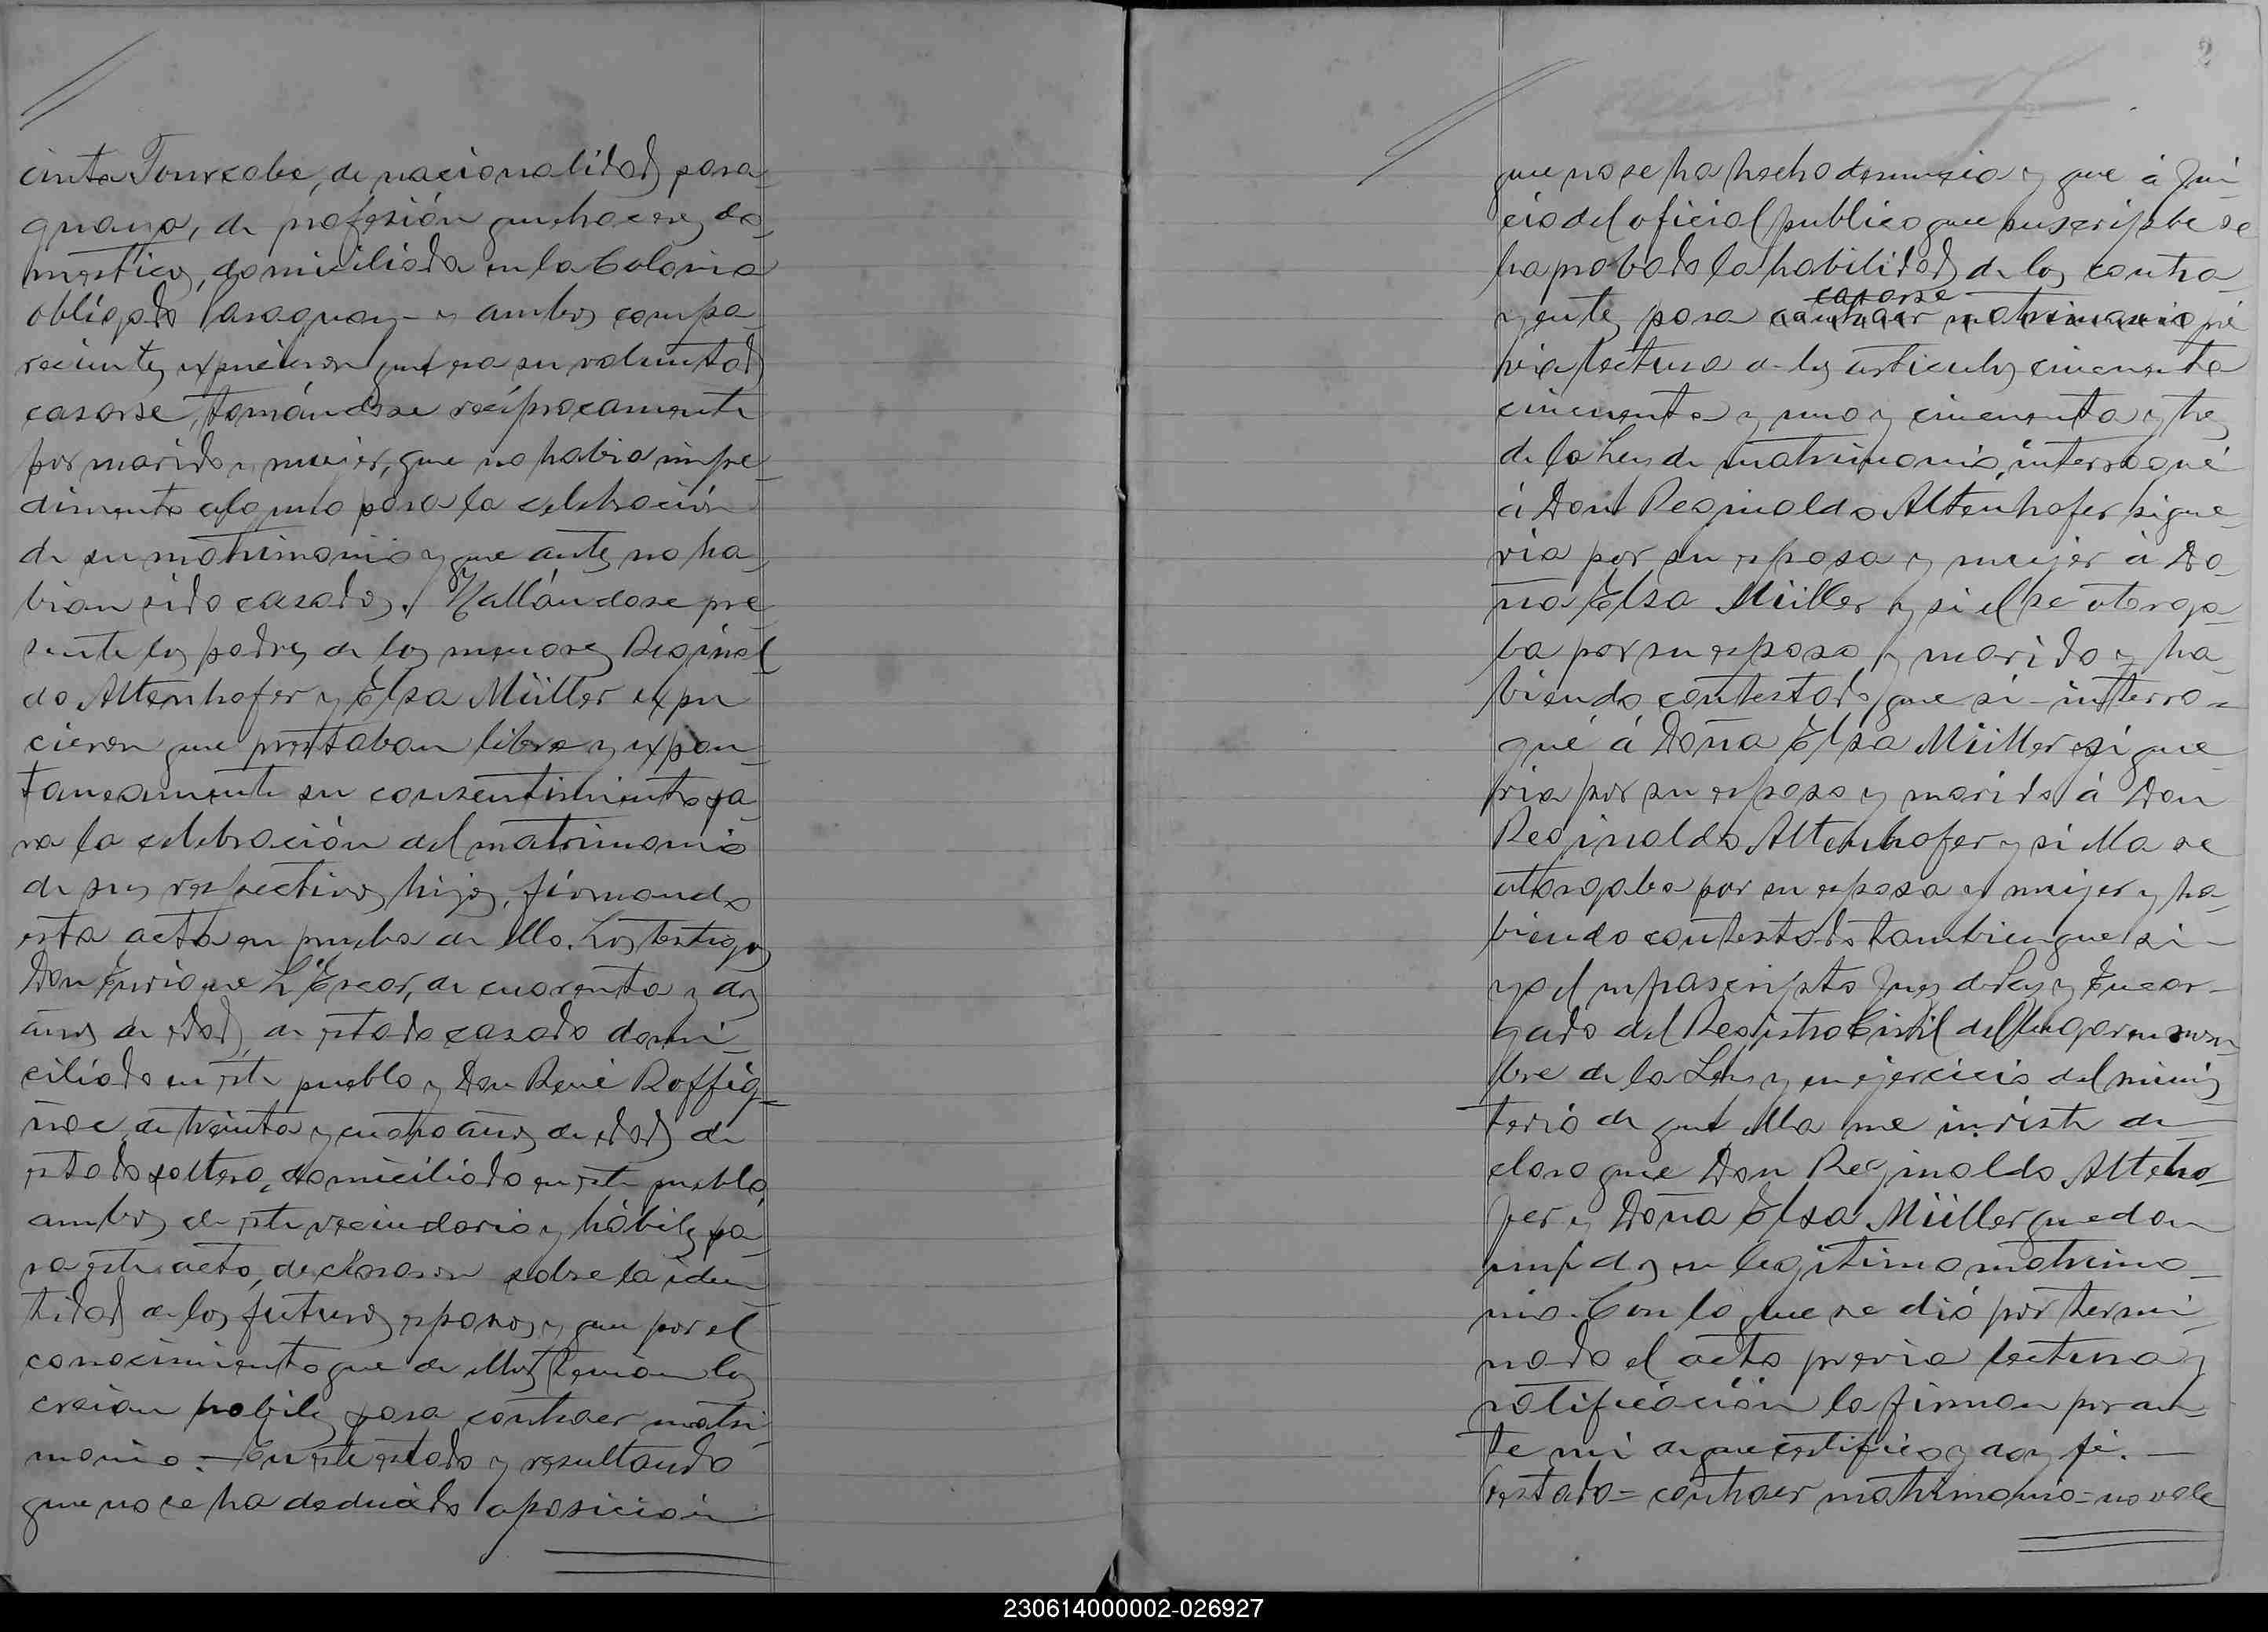 cinta Tourcabe, de nacionalidad para-
guaya, de profesión quehaceres do-
mésticos, domiciliada en la Colonia
obligado Paraguay - y ambos compa-
recientes expucieron que era su voluntad
casarse, tomándose recíprocamente
por marido y mujer, que no habia impe-
dimento alguno para la celebración
de su matrimonio y que antes no ha-
bian sido casados. Hallándose pre-
sente los padres de los menores Reginal-
do Altenhofer y Elsa Müller expu-
cieron que prestaban libre y expon-
taneamente su consentimiento pa-
ra la celebración del matrimonio
de sus respectivos hijos, firmando
esta acta en prueba de ello. Los testigos
Don Enrique L'Escor, de cuarenta y dos
años de edad, de estado casado domi-
ciliado en este pueblo y Don René Roffig-
ñac, de treinta y cuatro años de edad de
estado soltero, domiciliado en este pueblo,
ambos de este vecindario y hábiles pa-
ra este acto, declararon sobre la iden-
tidad de los futuros esposos y que por el
conocimiento que de ellos tenian los
creian habiles para contraer matri-
monio. - En este estado y resultando
que no se ha deducido oposición
2
que no se ha hecho denuncia y que á jui-
cio del oficial publico que suscripbe se
ha probado la habilidad de los contra-
casarse
yentes para contraer matrimonio pre-
via lectura de los articulos cincuenta
cincuenta y uno y cincuenta y tres
de la Ley de matrimonio, interrogué
á Don Reginaldo Altenhofer si que-
ria por su esposa y mujer á Do-
ña Elsa Müller y si el se otorga-
ba por su esposo y marido y ha-
biendo contestado que si - interro-
gué á Doña Elsa Müller si que-
ria por su esposo y marido á Don
Reginaldo Altenhofer y si ella se
otorgaba por su esposa y mujer y ha-
biendo contestado tambien que si -
yo el infrascripto Juez de Paz y Encar-
gado del Registro Civil del lugar en nom-
bre de la Ley y en ejercicio del minis-
terio de que ella me inviste de-
claro que Don Reginaldo Alteho-
fer y Doña Elsa Müller quedan
unidos en legitimo matrimo-
nio. Con lo que se dió por termi-
nado el acto previa lectura y
ratificación la firman por an-
te mi de que certifico y doy fé. -
Testado = contraer matrimonio = no vale
230614000002-026927